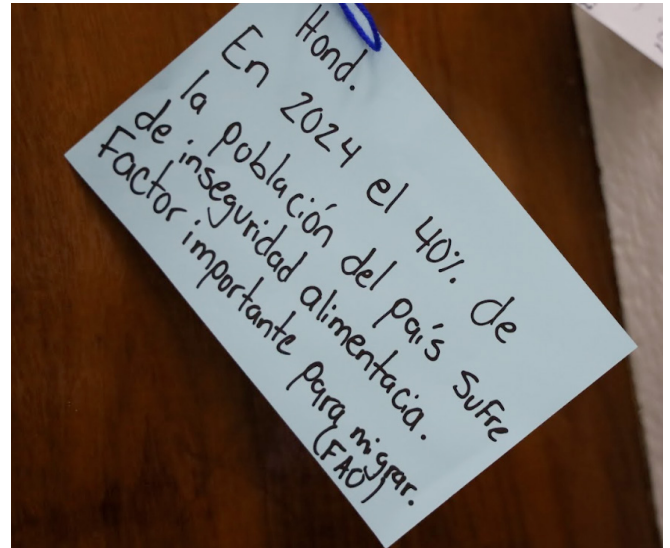 Hond.
En 2024 el 40% de
la población del país sufre
de inseguridad alimentacia.
Factor importante para migrar.
(FAO)